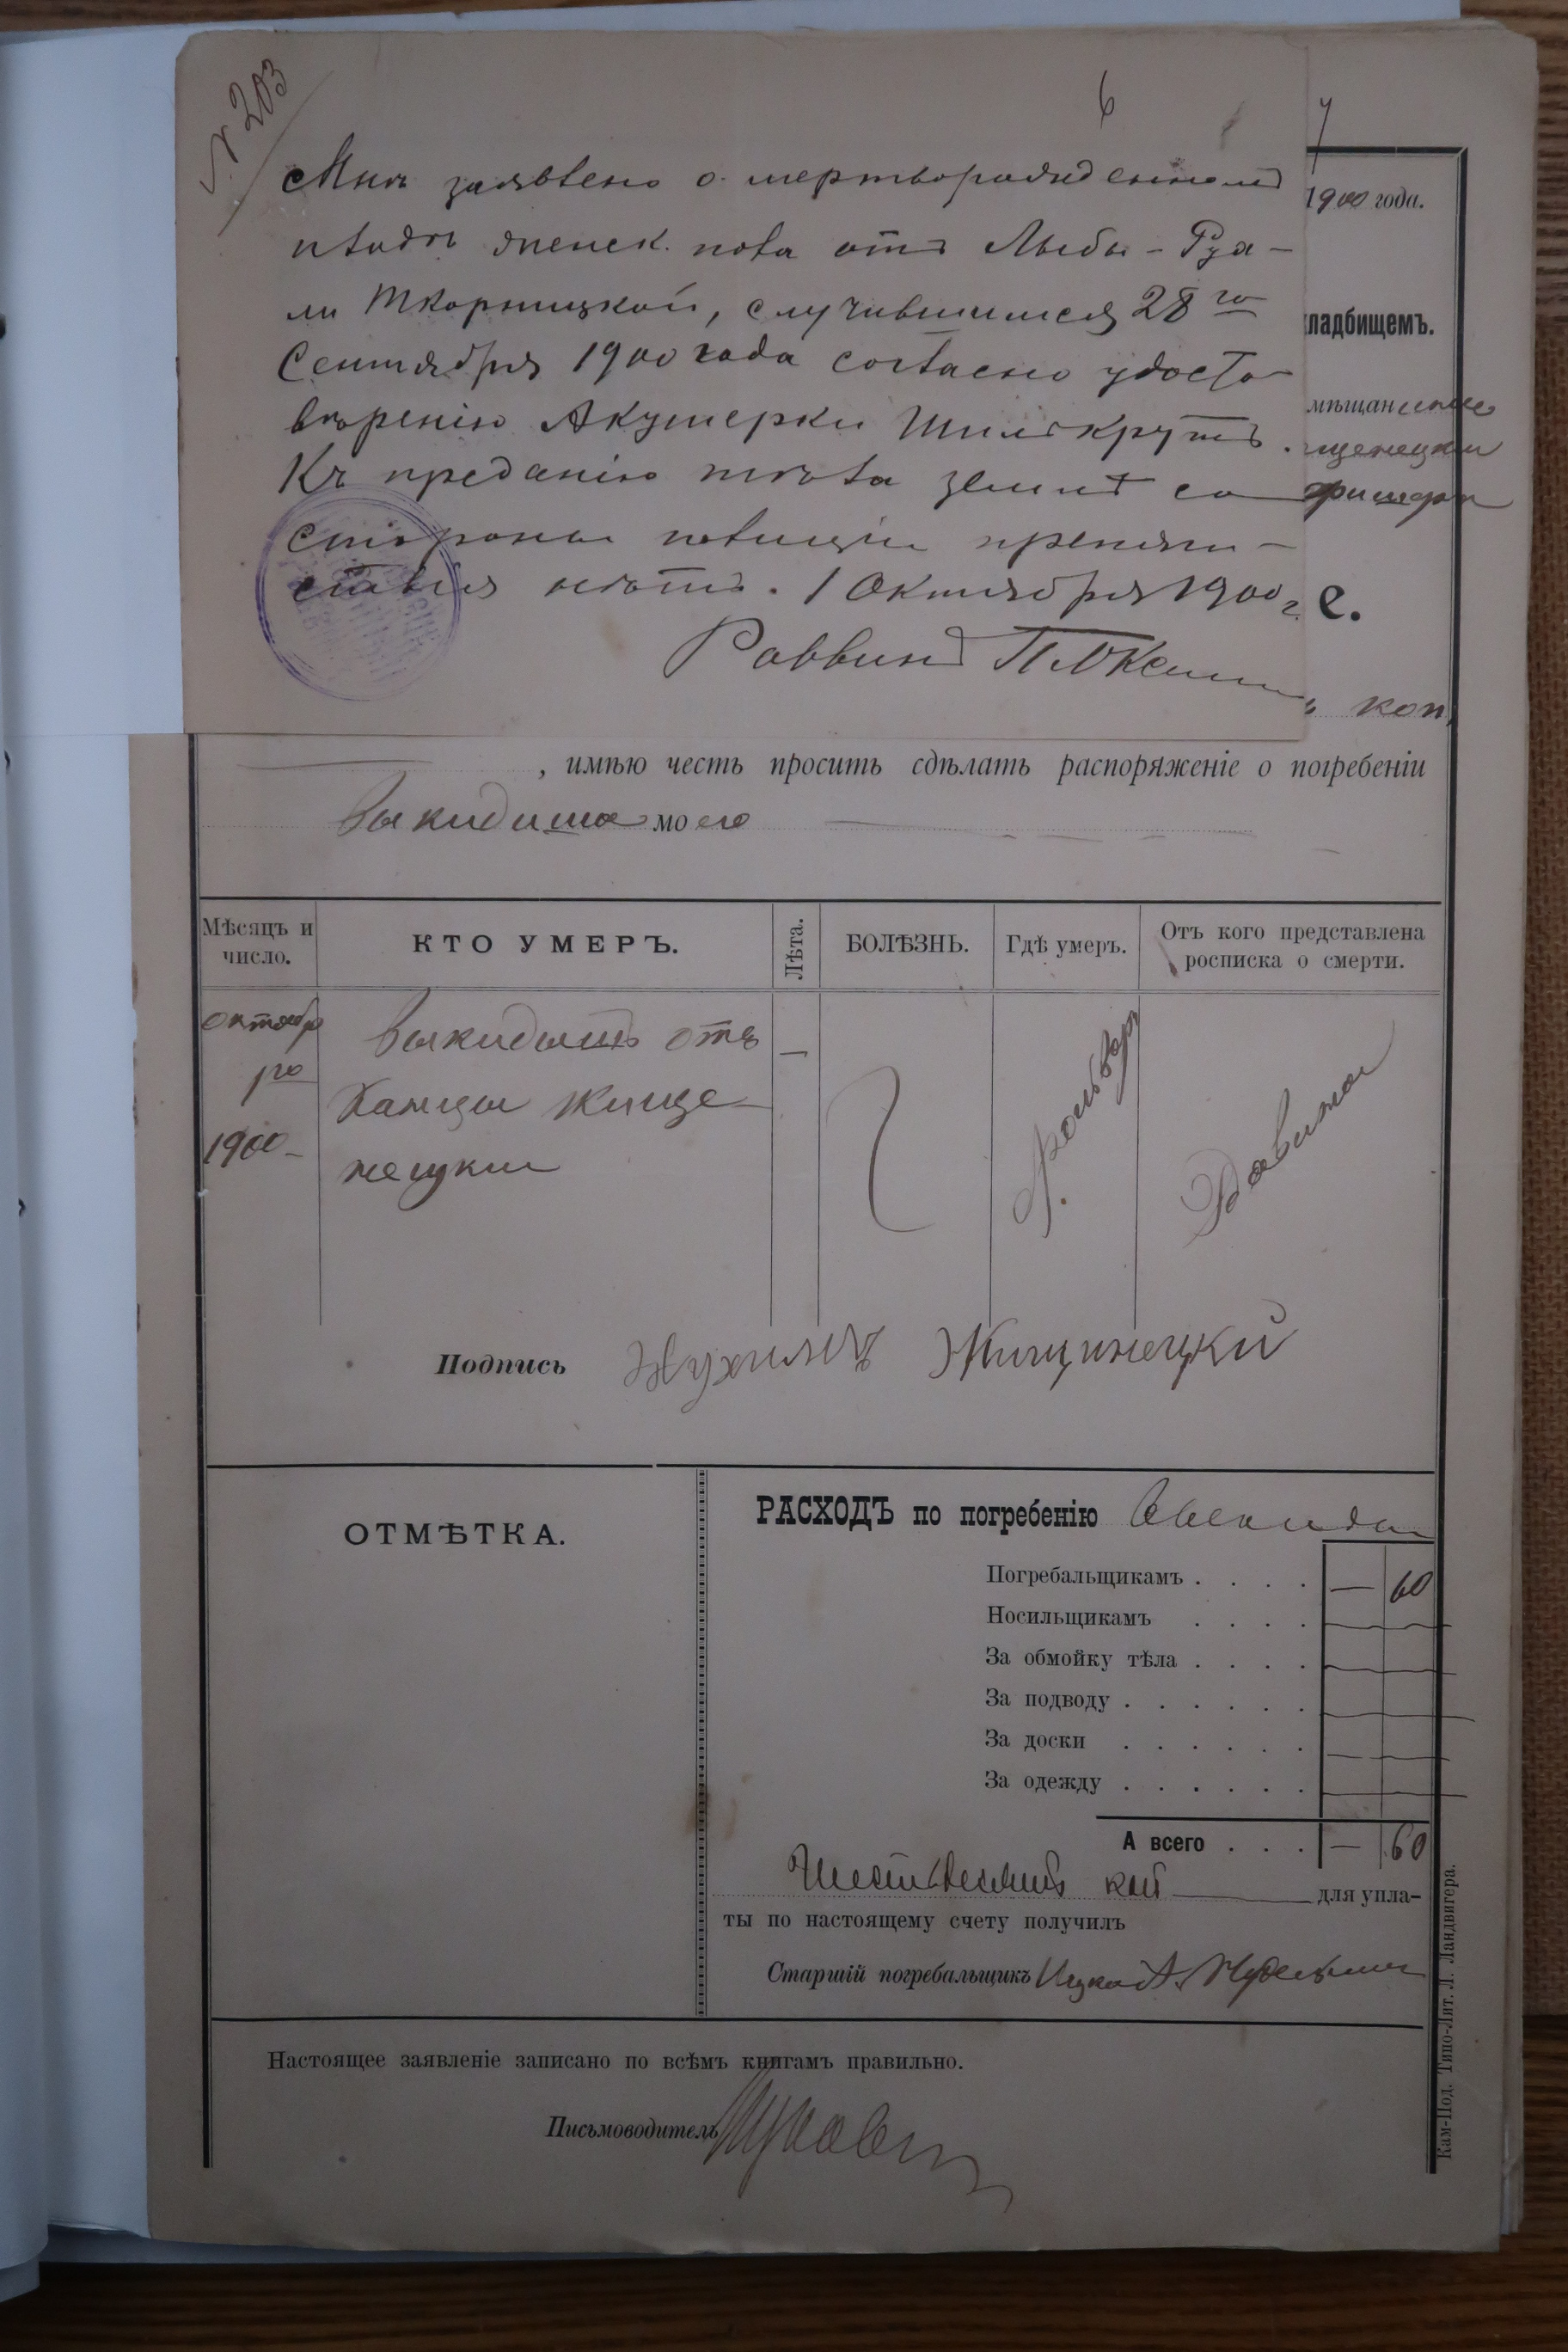 № 203
6
7
Мнѣ заявлено о мертворожденномъ
плодѣ женск. пола отъ Лыбы-Руз-
ли Ткорницкой, случившимся 28го
Сентября 1900 года согласно удосто
вѣренію Акушерки Шмискрутъ.
Къ преданію тѣла землѣ со
стороны полиціи препят-
ствія нѣтъ. 1 Октября 1900 г.
Раввинъ
1900 года.
кладбищемъ.
мѣщан
щенецкий
е.
коп.
, имѣю честь просить сдѣлать распоряженіе о погребеніи
Выкидыша моего
Мѣсяцъ и число.
КТО УМЕРЪ.
Лѣта.
БОЛѢЗНЬ.
Гдѣ умеръ.
Отъ кого представлена росписка о смерти.
октобр
1го
1900
Выкидышъ отъ
Ханцы Жище-
нецки
Подпись Нухимъ Жищинецкий
ОТМѢТКА.
РАСХОДЪ по погребенію
Погребальщикамъ . . . . — 60
Носильщикамъ . . . .
За обмойку тѣла . . . .
За подводу . . . . . .
За доски . . . . . .
За одежду . . . . . .
А всего . . . — 60
Шестьдесятъ коп для упла-
ты по настоящему счету получилъ
Старшій погребальщикъ Ицко А. Нудельман
Настоящее заявленіе записано по всѣмъ книгамъ правильно.
Письмоводитель
Кам-Под. Типо-Лит. Л. Ландвигера.